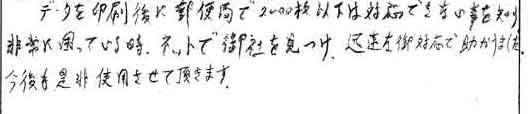 データを印刷後に郵便局で2000枚以下は対応できない事を知り
非常に困っている時、ネットで御社を見つけ、迅速な御対応で助かりました。
今後も是非使用させて頂きます。